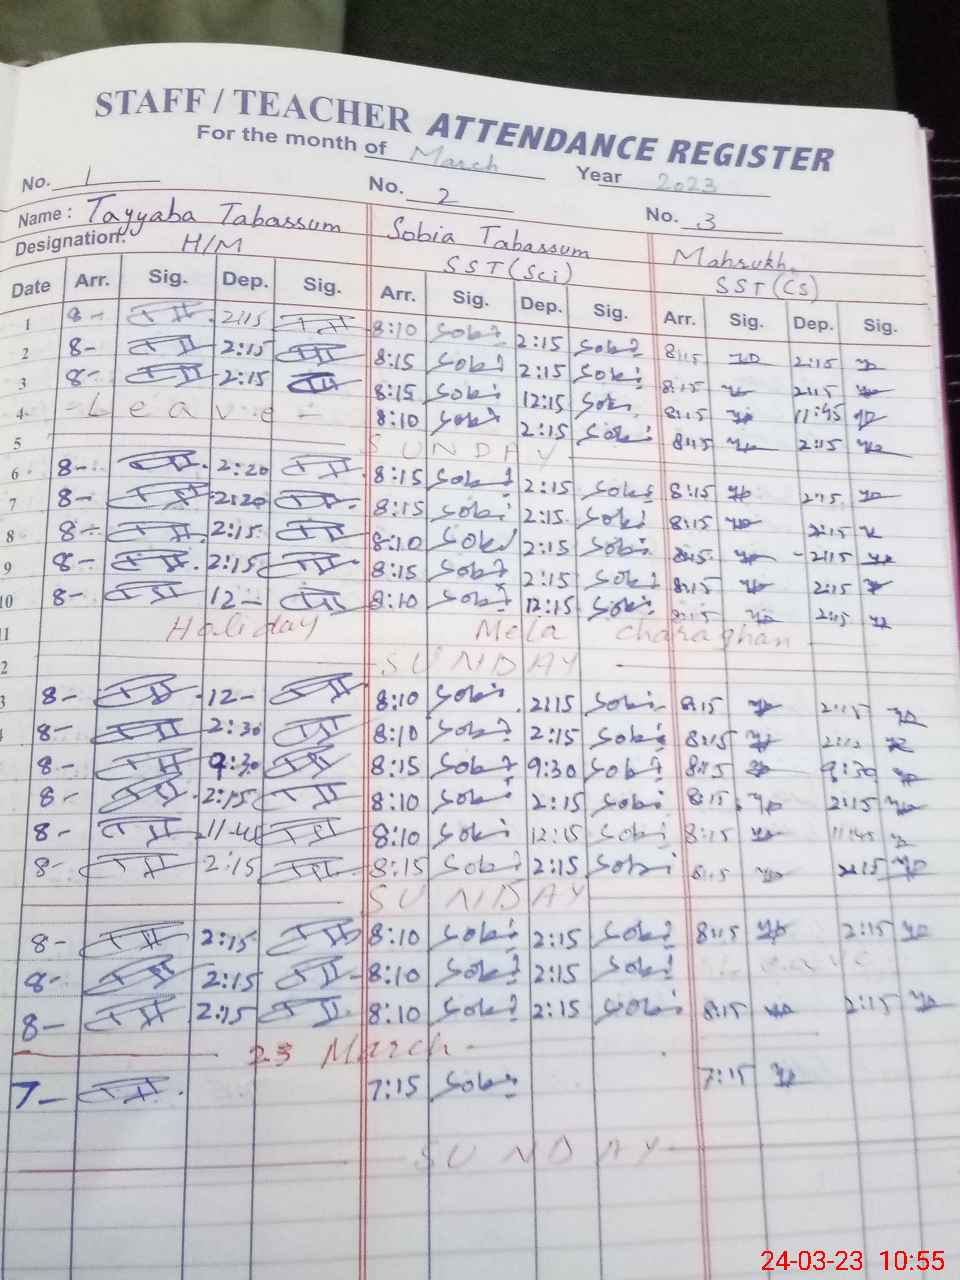 STAFF / TEACHER ATTENDANCE REGISTER
For the month of March Year 2023
No. 1 No. 2 No. 3
Name : Tayyaba Tabassum Sobia Tabassum Mahrukh
Designation: H/M SST (Sci) SST (CS)
Date Arr. Sig. Dep. Sig. Arr. Sig. Dep. Sig. Arr. Sig. Dep. Sig.
1 8- 2:15 8:10 Sobi 2:15 Sobi 8:15 2:15
2 8- 2:15 8:15 Sobi 2:15 Sobi 8:15 2:15
3 8- 2:15 8:15 Sobi 12:15 Sobi 8:15 11:45
4 Leave 8:10 Sobi 2:15 Sobi 8:15 2:15
5 SUNDAY
6 8- 2:20 8:15 Sobi 2:15 Sobi 8:15 2:15
7 8- 2:20 8:15 Sobi 2:15 Sobi 8:15 2:15
8 8- 2:15 8:10 Sobi 2:15 Sobi 8:15 2:15
9 8- 2:15 8:15 Sobi 2:15 Sobi 8:15 2:15
10 8- 12- 8:10 Sobi 12:15 Sobi 8:15 2:15
11 Holiday Mela charaghan
2 SUNDAY
3 8- 12- 8:10 Sobi 2:15 Sobi 8:15 2:15
8- 2:30 8:10 Sobi 2:15 Sobi 8:15
8- 9:30 8:15 Sobi 9:30 Sobi 8:15 9:30
8- 2:15 8:10 Sobi 2:15 Sobi 8:15 2:15
8- 8:10 Sobi 12:15 Sobi 8:15 11:45
8- 2:15 8:15 Sobi 2:15 Sobi 8:15 2:15
SUNDAY
8- 2:15 8:10 Sobi 2:15 Sobi 8:15 2:15
8- 2:15 8:10 Sobi 2:15 Sobi Leave
8- 2:15 8:10 Sobi 2:15 Sobi 8:15 2:15
23 March
7- 7:15 Sobi 7:15
SUNDAY
24-03-23 10:55